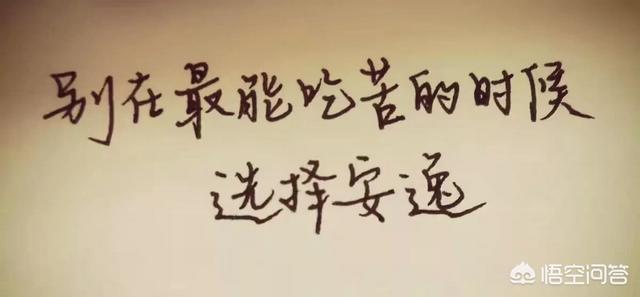 别在最能吃苦的时候
选择安逸
悟空问答